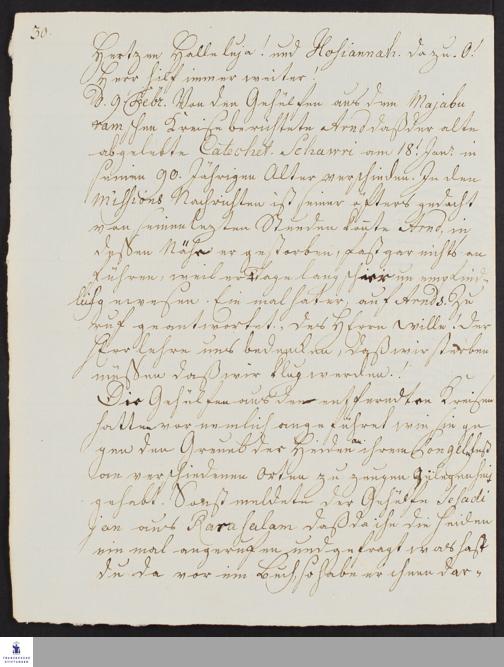 30.
Hertzen Halleluja! und Hosiannah. dazu. O!
Herr hilf immer weiter!
D. 9 Febr. Von den Gehülfen aus dem Majabu
ramschen Kreise berichtete Arnd daß der alte
abgelebte Catechet Schawri am 18t Janr. in
seinen 90. Jährigen Alter verschieden. In den
Missions Nachrichten ist seiner öfters gedacht
von seinen lezten Stunden konte Arnd, in
deßen Nähe er gestorben, fast gar nichts an
führen, weil er Tage lang schier unempfind-
lich gewesen. Ein mal hat er, auf Arnds Zu
ruf geantwortet, des Herrn Wille! Der
Herr lehre uns bedenken, daß wir sterben
müssen daß wir klug werden!
Die Gehülfen aus den entfernten Kreisen
hatten vornemlich angeführet wie sie ge
gen den Greuel der Heiden an ihrem
an verschiedenen Orten zu zeugen Gelegenheit
gehabt. Sonst meldete der Gehülfe Jesadi
jan aus Karasalam daß da ihn die Heiden
ein mal angerufen und gefragt was hast
du da vor ein Buch, so habe er ihnen dar-
FRANCKESCHE
STIFTUNGEN